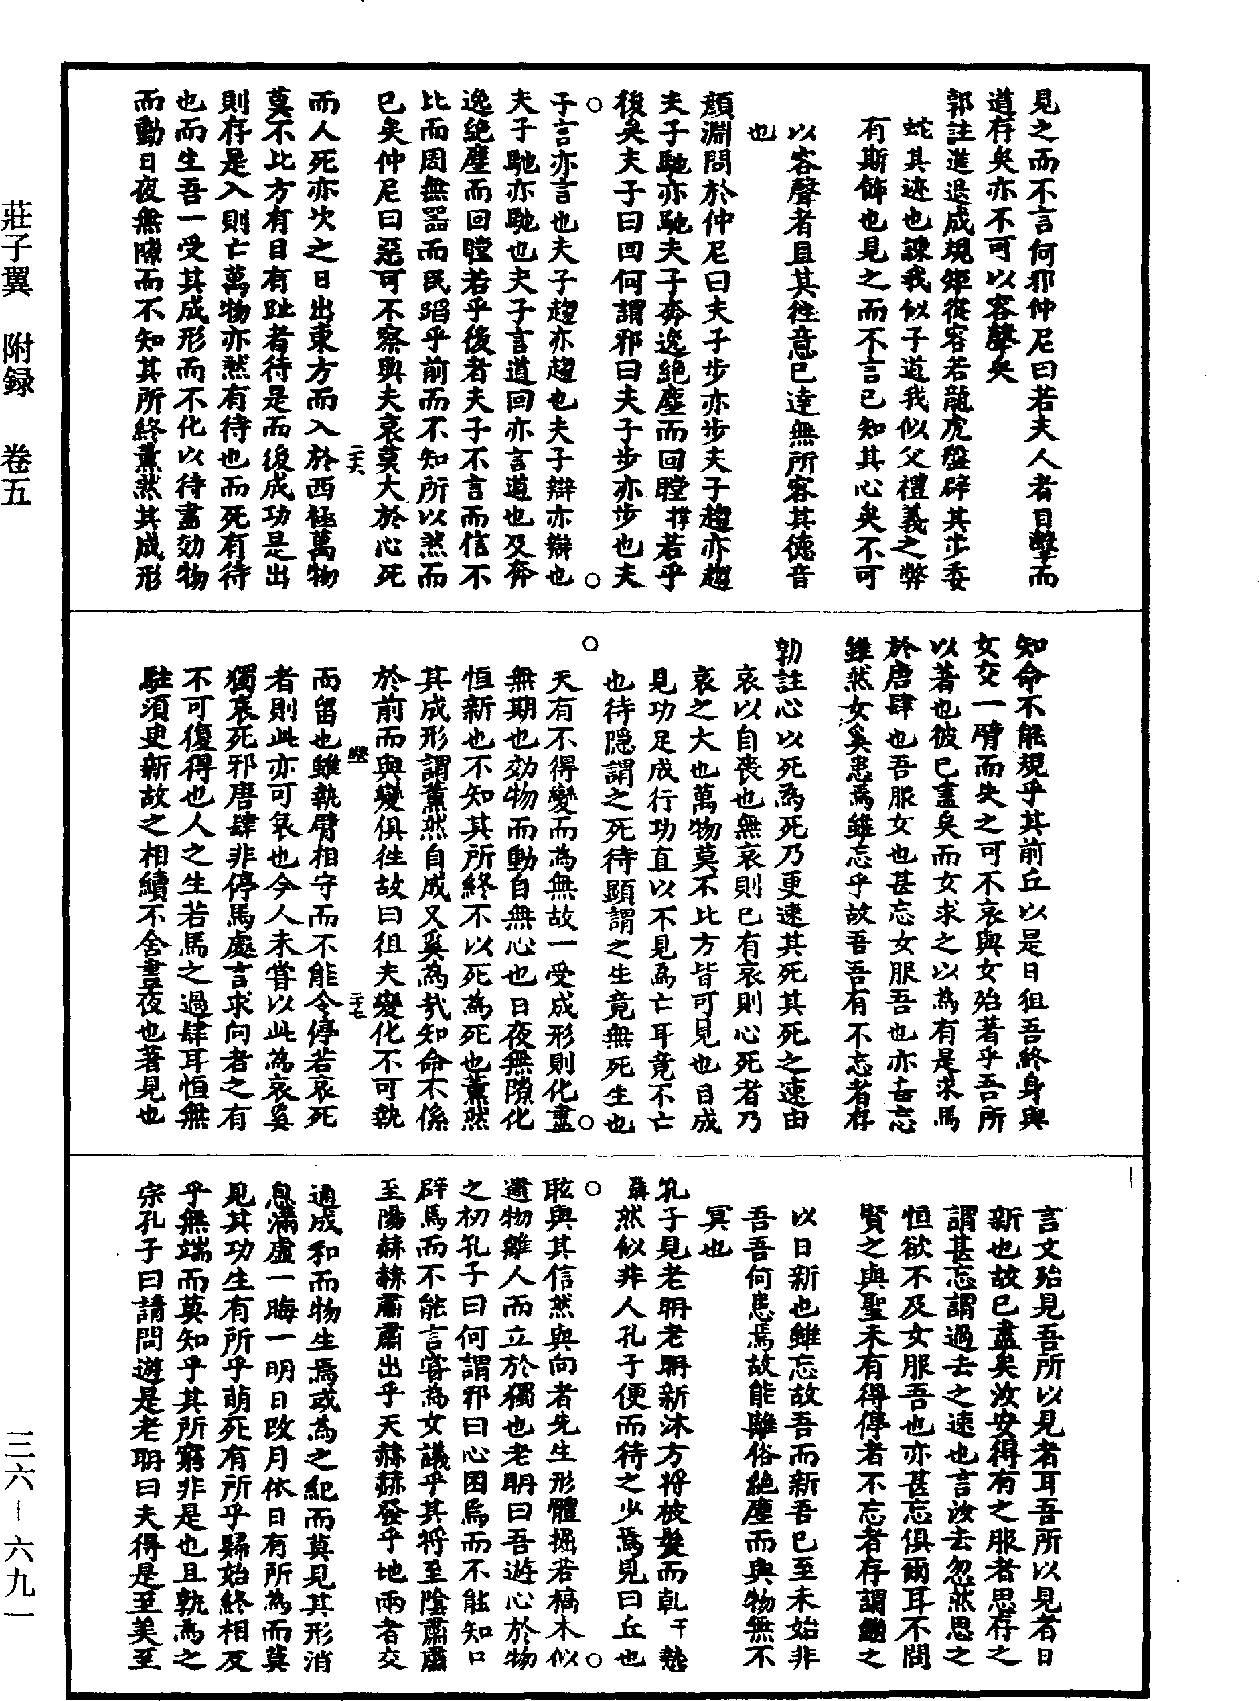 見之而不言何邪仲尼曰若夫人者目擊而
道存矣亦不可以容聲矣
郭註進退成規矩從容若龍虎盤辟其步委
蛇其迹也諫我似子道我似父禮義之弊
有斯飾也見之而不言已知其心矣不可
以容聲者且其徃意已達無所容其德音
也
顏淵問於仲尼曰夫子步亦步夫子趨亦趨
夫子馳亦馳夫子奔逸絕塵而回瞠撑若乎
後矣夫子曰回何謂邪曰夫子步亦步也夫
子言亦言也夫子趨亦趨也夫子辯亦辯也
夫子馳亦馳也夫子言道回亦言道也及奔
逸絕塵而回瞠若乎後者夫子不言而信不
比而周無器而民蹈乎前而不知所以然而
已矣仲尼曰惡可不察與夫哀莫大於心死
二六
而人死亦次之日出東方而入於西極萬物
莫不比方有目有趾者待是而後成功是出
則存是入則亡萬物亦然有待也而死有待
也而生吾一受其成形而不化以待盡効物
而動日夜無隙而不知其所終薰然其成形
知命不能規乎其前丘以是日徂吾終身與
女交一臂而失之可不哀與女殆著乎吾所
以著也彼已盡矣而女求之以為有是求馬
於唐肆也吾服女也甚忘女服吾也亦甚忘
雖然女奚患焉雖忘乎故吾吾有不忘者存
郭註心以死為死乃更速其死其死之速由
哀以自喪也無哀則已有哀則心死者乃
哀之大也萬物莫不比方皆可見也目成
見功足成行功直以不見為亡耳竟不亡
也待隱謂之死待顯謂之生竟無死生也
夫有不得變而為無故一受成形則化盡
無期也効物而動自無心也日夜無隙化
恒新也不知其所終不以死為死也薰然
其成形謂薰然自成又奚為哉知命不係
於前而與變俱徃故曰徂夫變化不可執
經
二七
而留也雖執臂相守而不能令停若哀死
者則此亦可哀也今人未嘗以此為哀奚
獨哀死邪唐肆非停馬處言求向者之有
不可復得也人之生若馬之過肆耳恒無
駐須臾新故之相續不舍晝夜也著見也
言女殆見吾所以見者耳吾所以見者日
新也故已盡矣汝安得有之服者思存之
謂甚忘謂過去之速也言汝去忽然思之
恒欲不及女服吾也亦甚忘俱爾耳不問
賢之與聖未有得停者不忘者存謂繼之
以日新也雖忘故吾而新吾已至未始非
吾吾何患焉故能離俗絕塵而與物無不
冥也
孔子見老聃老聃新沐方將被髮而乾干慹
聶然似非人孔子便而待之少焉見曰丘也
眩與其信然與向者先生形體掘若槁木似
遺物離人而立於獨也老聃曰吾遊心於物
之初孔子曰何謂邪曰心困焉而不能知口
辟焉而不能言嘗為女議乎其將至陰肅肅
至陽赫赫肅肅出乎天赫赫發乎地兩者交
通成和而物生焉或為之紀而莫見其形消
息滿虛一晦一明日改月化日有所為而莫
見其功生有所乎萌死有所乎歸始終相反
乎無端而莫知乎其所窮非是也且孰為之
宗孔子曰請問遊是老聃曰夫得是至美至
莊子翼　附録　卷五
三六－六九一